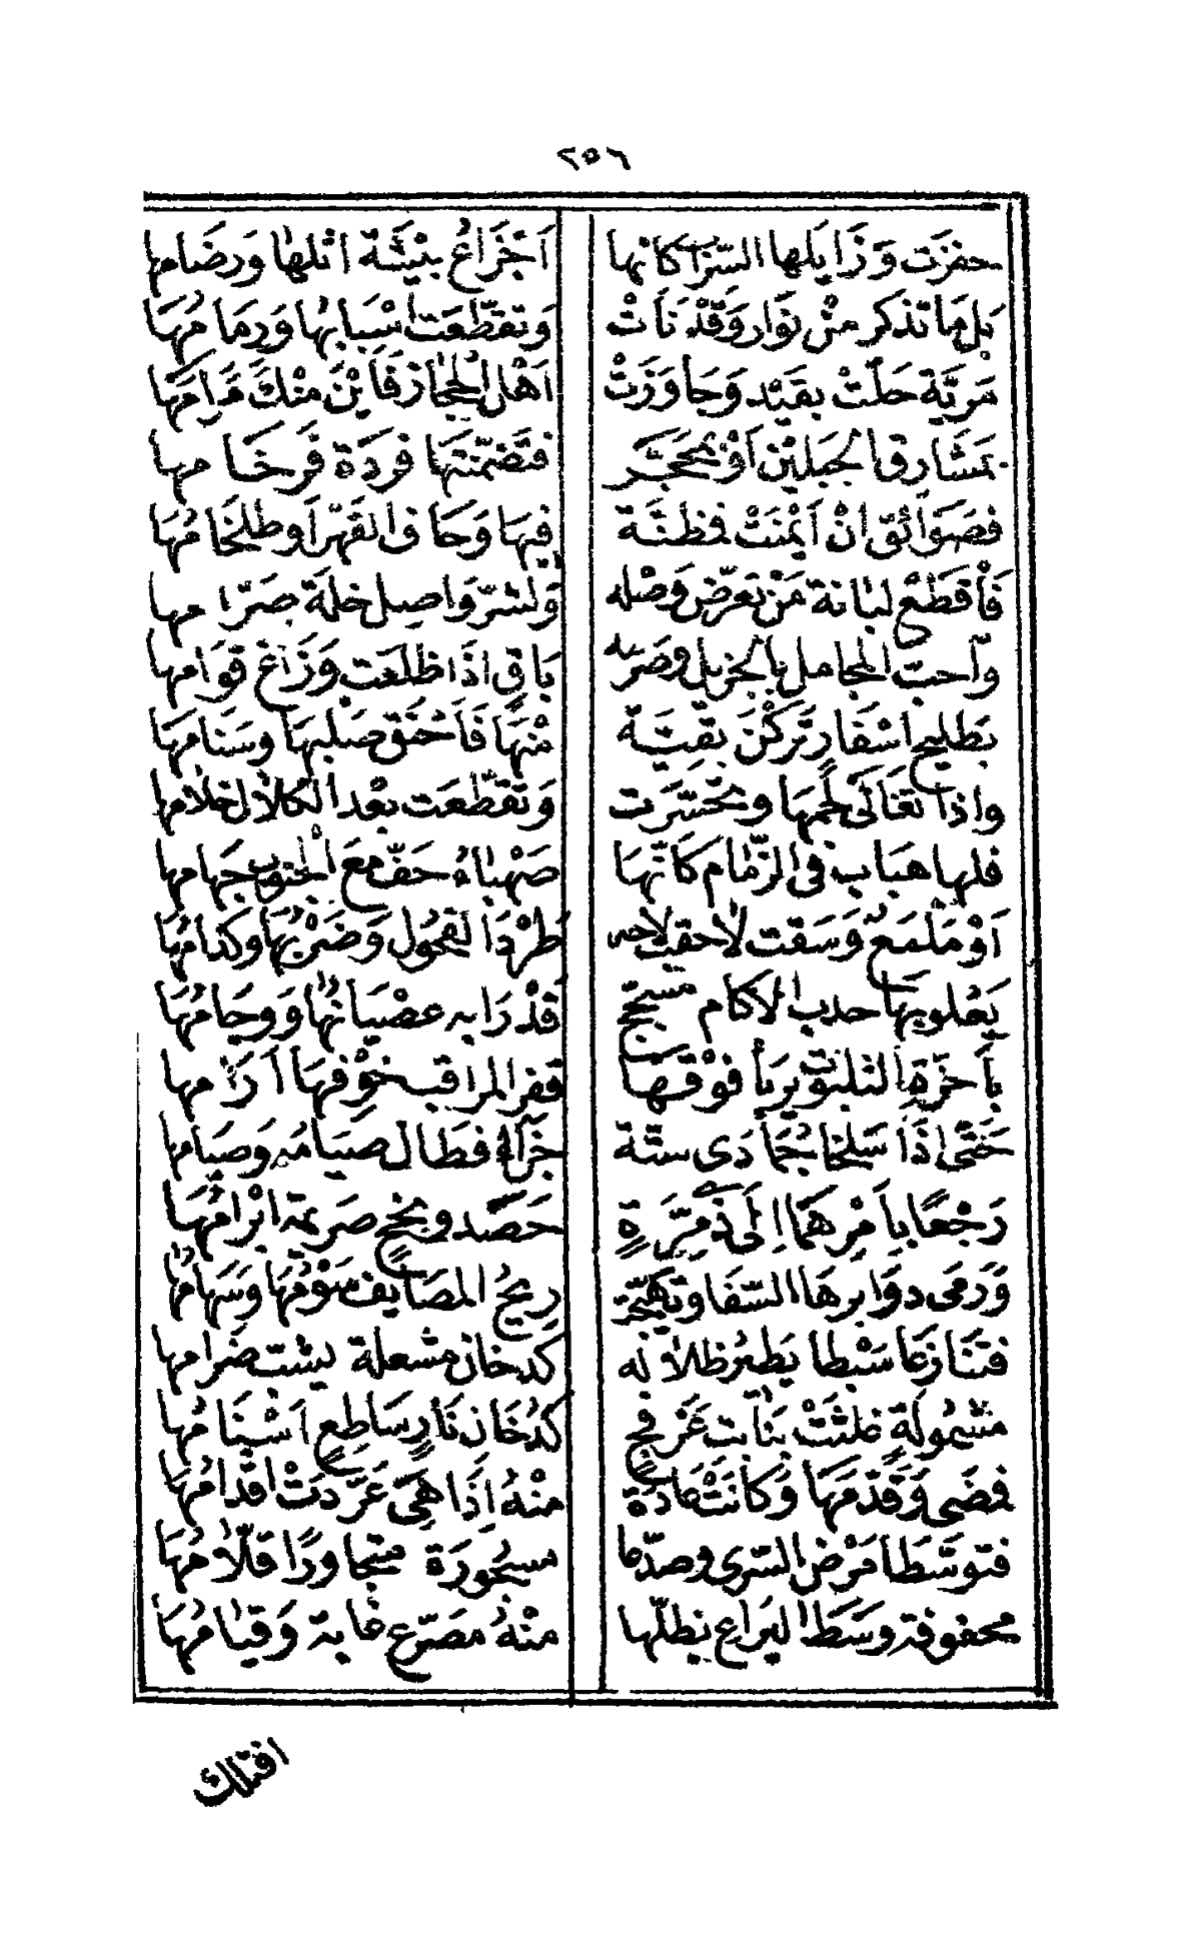 ٢٥٦
حفزت وَزَايَلها السّرَاب كانها اَجْزَاعُ بِيْشَة اثلهَا وَرضَامها
بل مَا تذكر مِنْ نَوَار وَقَدْ نَأتْ وَتقطّعَت اَسْبَابهُا وَرِمَامُهَا
مَريّة حَلّتْ بفَيْد وَجَاوَرَتْ اَهْل الحجَاز فَأيْنَ مِنْكَ مَرَامهَا
بمَشَارق الجبليْن اَوْ بمُحَجَّر فتضمّنتهَا فرْدَة فَرخَامها
فصَوَائق انْ اَيْمنَتْ فمظنّة فِيهَا وَحَاف القَهْر اَو طلخَامُهَا
فَأقطَعْ لبَانة مَنْ تعَرّض وَصْله وَلشرّ وَاصِل خلّة صَرّامها
وَاَحبّ المجامل بالجزيل وصَرْمه بَاقٍ اذَا ظلعَت وَزَاغ قوَامها
بَطليح اسْفَار تَرَكْنَ بَقِيّة مِنْهَا فَاَحْنَق صلبهَا وسَنَامهَا
واذَا تغَالَى لحْمهَا وتحسّرَت وَتقطّعَت بعْد الكلال خدَامها
فلها هبَاب فى الزّمَام كأنّهَا صَهْبَاءُ خفّ معَ الجنوب جهَامها
اَوْ مُلْمِعٍ وَسَقت لاَحقب لاحه طرْدُ الفحُول وَضَرْبهَا وَكدَامُهَا
يَعْلو بهَا حدب الاكام مسحج قَدْ رَابه عصْيَانهَا وَوِحَامُهَا
بأحزّة الثلبوت يربَأ فوْقهَا قفر المراقب خوْفهَا آرَامها
حَتّى اذَا سَلخا جُمَادَى ستّة جَزَأَا فطَال صيَامُه وَصيَامها
رَجَعَا بأمْرهمَا اِلَى ذِى مِرّةٍ حَصد ونجْحُ صَريمَة ابْرَامُهَا
وَرَمى دوَابرهَا السّفَا وتهيّجت رِيحُ المصَايف سَوْمُهَا وَسَهامُهَا
فتنَازعَا سَبْطا يَطيْرُ ظلاَلُه كدخان مشعلة يشبّ ضرَامها
مشمُولَةٍ غلثَتْ بنَابت عَرْفجٍ كدُخَان نَارٍ سَاطعٍ اَسْنَامُها
فمضى وَقدّمَهَا وَكانَتْ عَادَة مِنْهُ اِذَا هِىَ عَرّدَتْ اقْدَامُهَا
فتوسّطَا عُرْض السّرى وصدّعَا مسجُورَة متجَاورًا قلّامُهَا
محفوفة وسَط اليَرَاع يظلّها مِنْهُ مُصَرّع غابة وَقيَامُهَا
افتلك